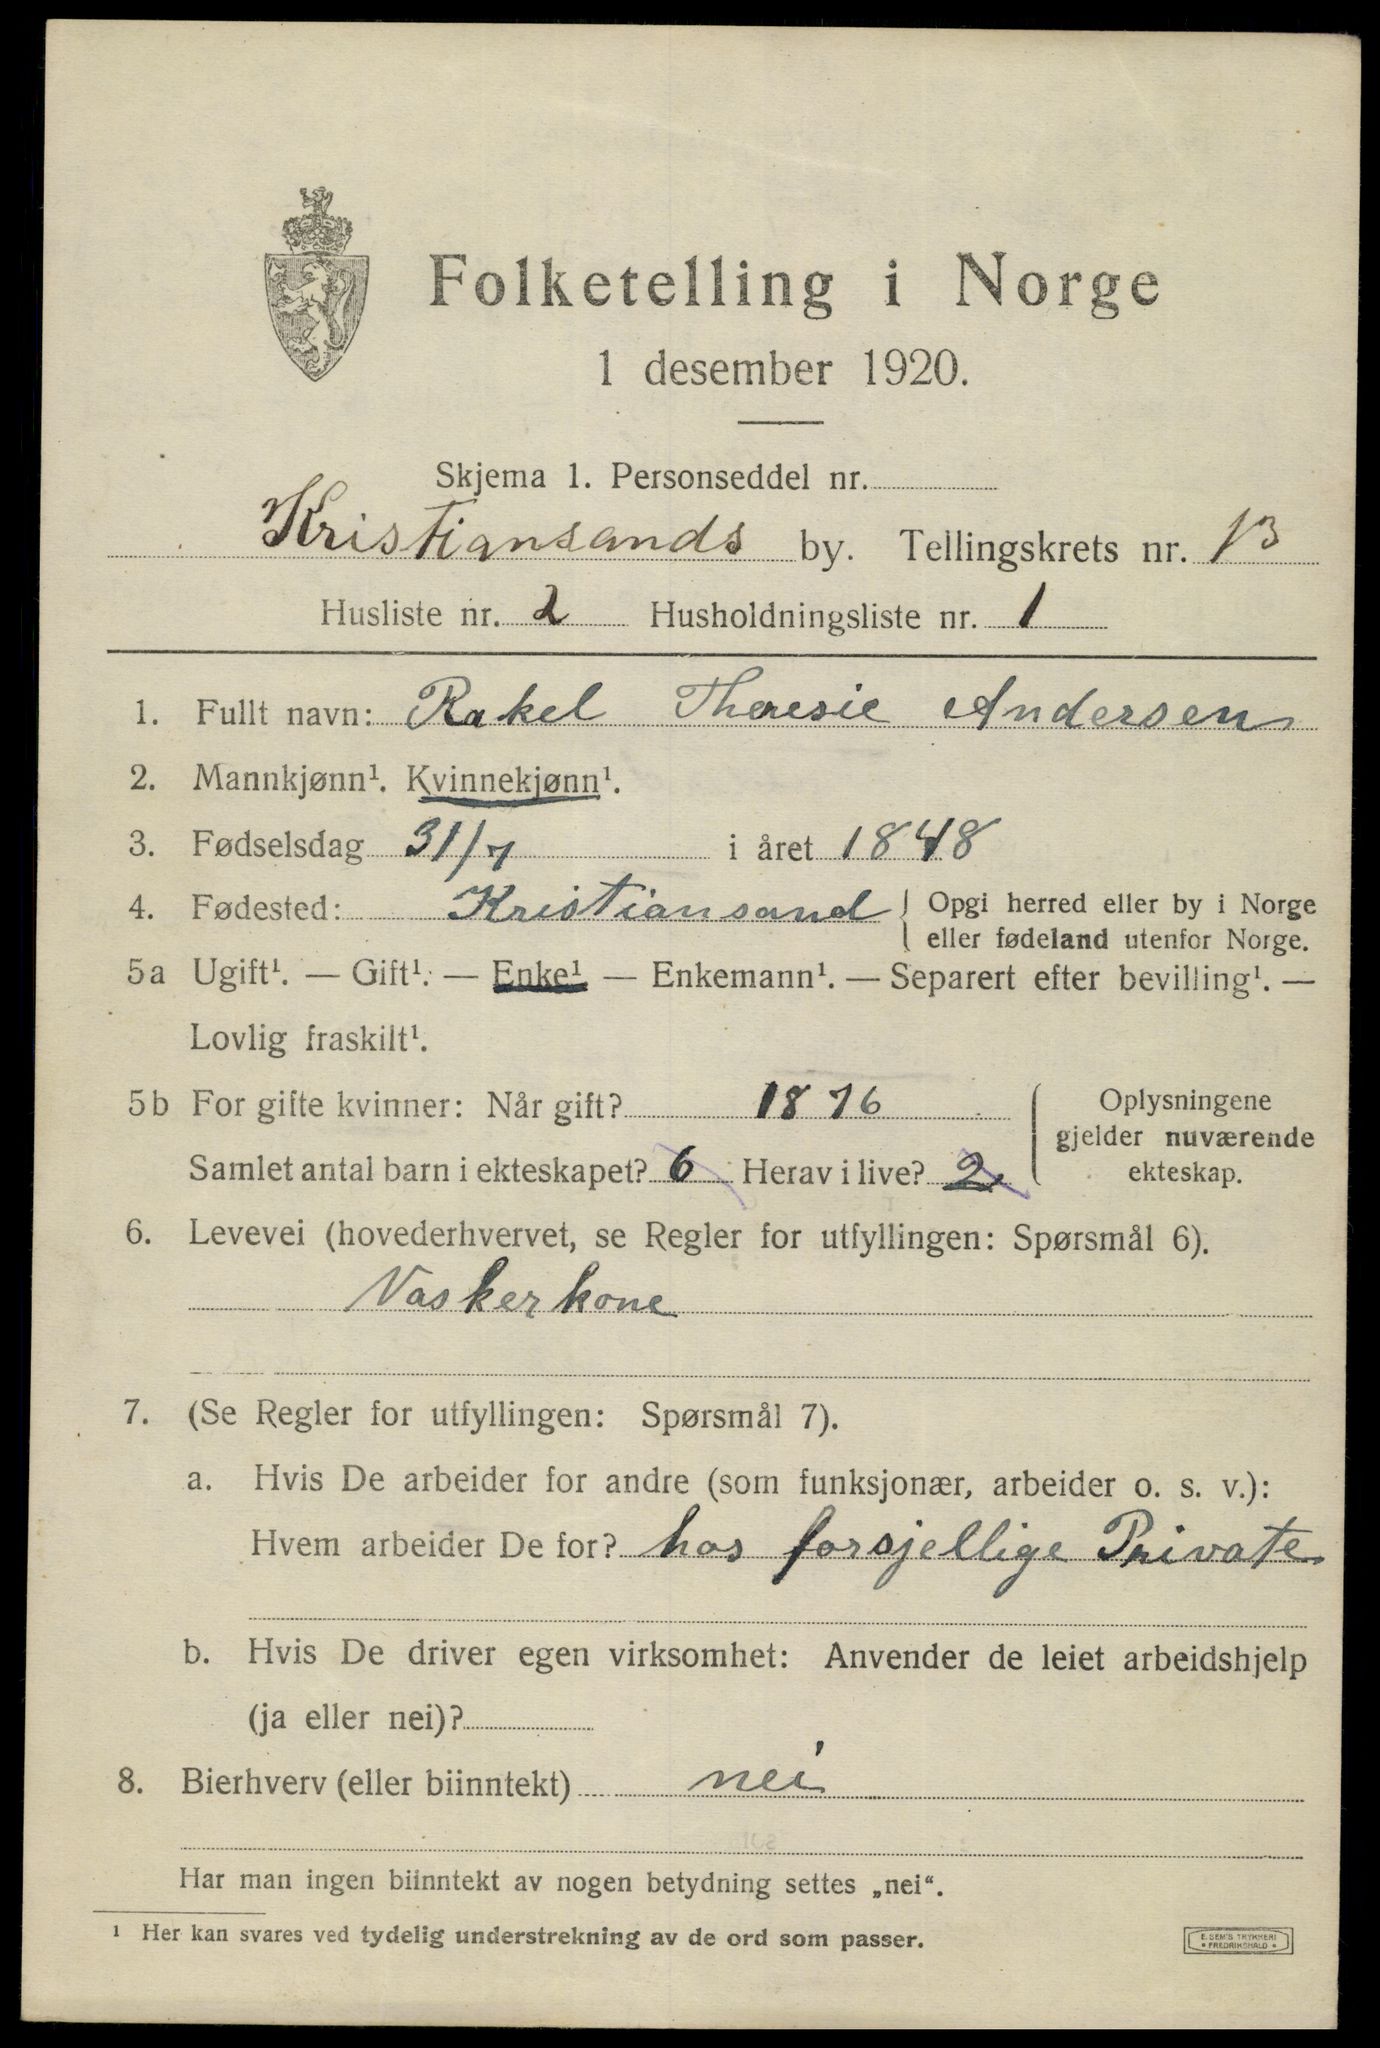 Folketelling i Norge
1 desember 1920.
Skjema 1. Personseddel nr.
Kristiansands by. Tellingskrets nr. 13
Husliste nr. 2 Husholdningsliste nr. 1
1. Fullt navn: Rakel Theresie Andersen
2. Mannkjønn¹. Kvinnekjønn¹.
3. Fødselsdag 31/7 i året 1848
4. Fødested: Kristiansand { Opgi herred eller by i Norge
eller fødeland utenfor Norge.
5a Ugift¹. — Gift¹. — Enke¹ — Enkemann¹. — Separert efter bevilling¹. —
Lovlig fraskilt¹.
5b For gifte kvinner: Når gift? 1876
Samlet antal barn i ekteskapet? 6 Herav i live? 2
Oplysningene
gjelder nuværende
ekteskap.
6. Levevei (hovederhvervet, se Regler for utfyllingen: Spørsmål 6).
Vaskerkone
7. (Se Regler for utfyllingen: Spørsmål 7).
a. Hvis De arbeider for andre (som funksjonær, arbeider o. s. v.):
Hvem arbeider De for? hos forsjellige Private
b. Hvis De driver egen virksomhet: Anvender de leiet arbeidshjelp
(ja eller nei)?
8. Bierhverv (eller biinntekt) nei
Har man ingen biinntekt av nogen betydning settes „nei“.
¹ Her kan svares ved tydelig understrekning av de ord som passer.
E. SEM'S TRYKKERI
• FREDRIKSHALD •